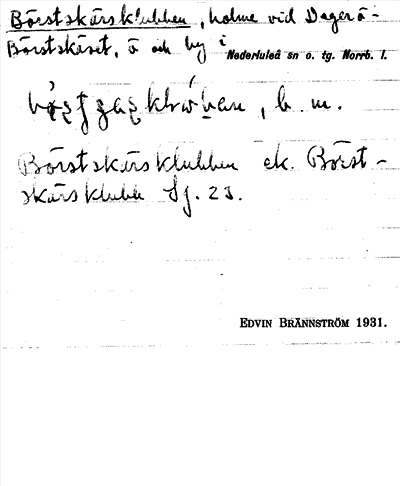 Börstskärsklubben, holme vid Degerö-
Börstskäret, ö och by i
Nederluleå sn o. tg. Norrb. l.
, b. m.
Börstskärsklubben ek. Börst-
skärsklubb Sj. 23.
EDVIN BRÄNNSTRÖM 1931.